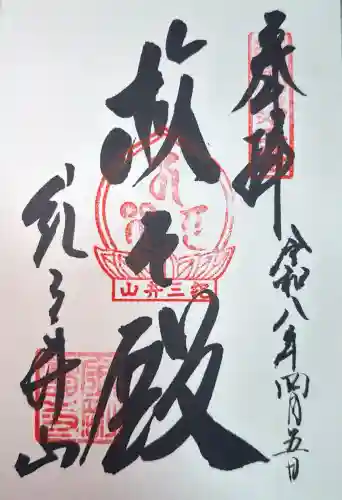 奉拝
令和八年四月五日
救世殿
山井三紀
紀三井山